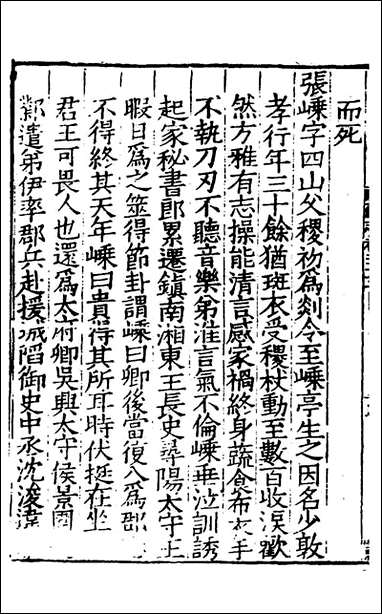 而死
張嵊字四山父稷初為剡令至嵊亭生之因名少敦
孝行年三十餘猶斑衣受稷杖動至數百收淚歡
然方雅有志操能清言感家禍終身蔬食布衣手
不執刀刃不聽音樂弟淮言氣不倫嵊垂泣訓誘
起家秘書郎累遷鎮南湘東王長史尋陽太守王
暇日為之筮得節卦謂嵊曰卿後當復入為郡
不得終其天年嵊曰貴得其所耳時伏挺在坐
君王可畏人也還為太府卿吳興太守侯景圍
鄴遣弟伊率郡兵赴援城陷御史中丞沈浚違